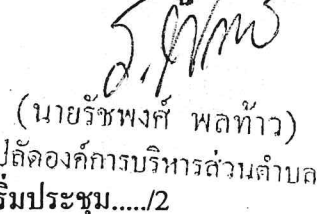 (นายรัชพงศ์ พลท้าว)
ปลัดองค์การบริหารส่วนตำบล
ริ่มประชุม...../2